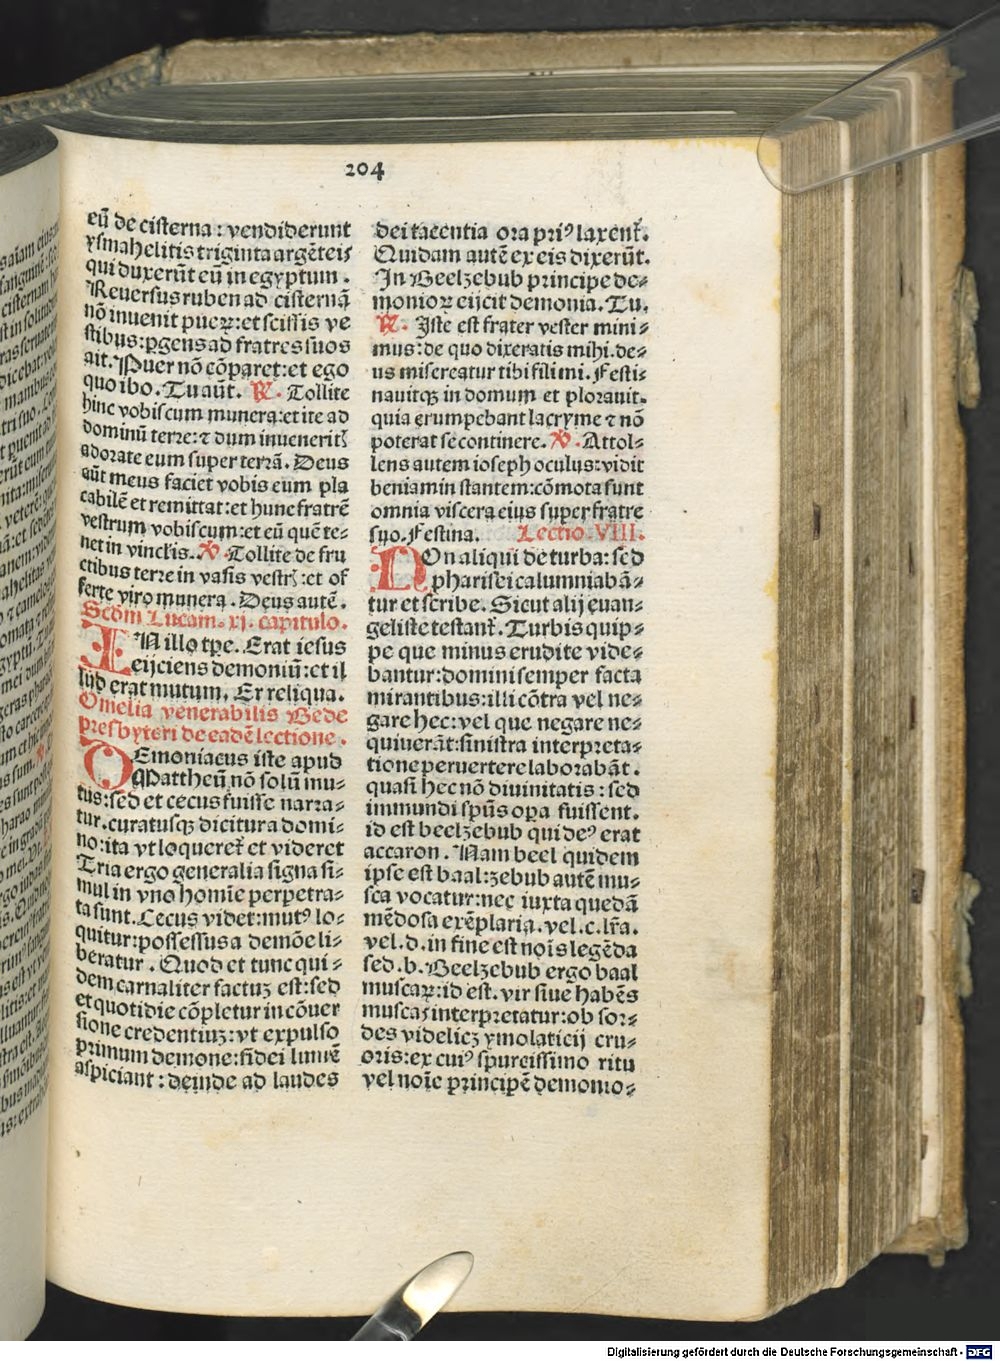 204
eū de cisterna: vendiderunt
ysmahelitis triginta argēteis
qui duxerūt eū in egyptum.
Reuersus ruben ad cisternā
nō inuenit pueꝝ: et scissis ve
stibus: ꝑgens ad fratres suos
ait. Puer nō cōparet: et ego
quo ibo. Tu aūt. ℟. Tollite
hinc vobiscum munera: et ite ad
dominū terre: ⁊ dum inuenerit
adorate eum super terrā. Deus
aūt meus faciet vobis eum pla
cabilē et remittat: et hunc fratrē
vestrum vobiscum: et eū quē te⸗
net in vinclis. ℣. Tollite de fru
ctibus terre in vasis vestr: et of
ferte viro munera. Deus autē.
Scd̄m Lucam. xj. capitulo.
IN illo tp̄e. Erat iesus
eijciens demoniū: et il
lud erat mutum. Et reliqua.
Omelia venerabilis Bede
presbyteri de eadē lectione.
DEmoniacus iste apud
Mattheū nō solū mu⸗
tus: sed et cecus fuisse narra⸗
tur. curatusqꝫ dicitur a domi⸗
no: ita vt loqueret et videret
Tria ergo generalia signa si⸗
mul in vno homīe perpetra⸗
ta sunt. Cecus videt: mutꝰ lo⸗
quitur: possessus a demōe li⸗
beratur. Quod et tunc qui⸗
dem carnaliter factuꝫ est: sed
et quotidie cōpletur in cōuer
sione credentiuꝫ: vt expulso
primum demone: fidei lumē
aspiciant: deinde ad laudes
dei tacentia ora priꝰ laxent.
Quidam autē ex eis dixerūt.
In Beelzebub principe de⸗
monioꝝ eijcit demonia. Tu.
℟. Iste est frater vester mini⸗
mus: de quo dixeratis mihi. de⸗
us misereatur tibi fili mi. Festi⸗
nauitqꝫ in domum et plorauit.
quia erumpebant lacryme ⁊ nō
poterat se continere. ℣. Attol⸗
lens autem ioseph oculus: vidit
beniamin stantem: cōmota sunt
omnia viscera eius super fratre
suo. Festina. Lectio. VIII.
NOn aliqui de turba: sed
pharisei calumniabā⸗
tur et scribe. Sicut alij euan⸗
geliste testant. Turbis quip⸗
pe que minus erudite vide⸗
bantur: domini semper facta
mirantibus: illi cōtra vel ne⸗
gare hec: vel que negare ne⸗
quiuerāt: sinistra interpreta⸗
tione peruertere laborabāt.
quasi hec nō diuinitatis: sed
immundi spūs oꝑa fuissent.
id est beelzebub qui deꝰ erat
accaron. Nam beel quidem
ipse est baal: zebub autē mu⸗
sca vocatur: nec iuxta quedā
mēdosa exēplaria. vel. c. lr̄a.
vel. d. in fine est noīs legēda
sed. b. Beelzebub ergo baal
muscaꝝ: id est. vir siue habēs
muscas interpretatur: ob sor⸗
des videlicꝫ ymolaticij cru⸗
oris: ex cuiꝰ spurcissimo ritu
vel noīe principē demonio⸗
Digitalisierung gefördert durch die Deutsche Forschungsgemeinschaft - DFG